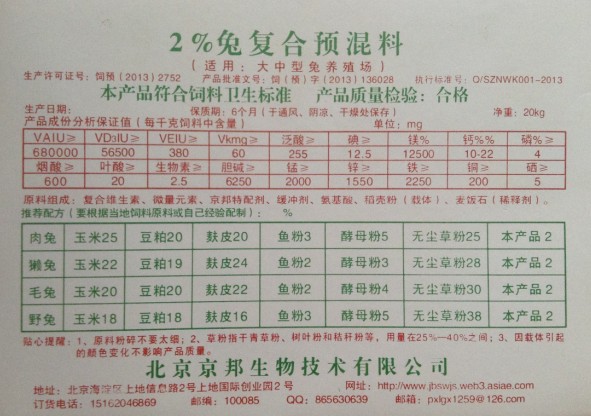 2%兔复合预混料
（适用：大中型兔养殖场）
生产许可证号：饲预（2013）2752 产品批准文号：饲（预）字（2013）136028 执行标准号：Q/SZNWK001-2013
本产品符合饲料卫生标准 产品质量检验：合格
生产日期： 保质期：6个月（于通风、阴凉、干燥处保存） 净重：20kg
产品成份分析保证值（每千克饲料中含量） 单位：mg
VAIU≥ VD3IU≥ VEIU≥ Vkmg≥ 泛酸≥ 碘≥ 镁% 钙%% 磷%≥
680000 56500 380 60 255 12.5 12500 10-22 4
烟酸≥ 叶酸≥ 生物素≥ 胆碱≥ 锰≥ 锌≥ 铁≥ 铜≥ 硒≥
600 20 2.5 6250 2000 1550 2250 200 5
原料组成：复合维生素、微量元素、京邦特配剂、缓冲剂、氨基酸、稻壳粉（载体）、麦饭石（稀释剂）。
推荐配方（要根据当地饲料原料或自己经验配制）： %
肉兔 玉米25 豆粕20 麸皮20 鱼粉3 酵母粉5 无尘草粉25 本产品2
獭兔 玉米22 豆粕19 麸皮24 鱼粉2 酵母粉3 无尘草粉28 本产品2
毛兔 玉米20 豆粕20 麸皮22 鱼粉2 酵母粉4 无尘草粉30 本产品2
野兔 玉米18 豆粕18 麸皮16 鱼粉3 酵母粉5 无尘草粉38 本产品2
贴心提醒：1、原料粉碎不要太细；2、草粉指干青草粉、树叶粉和秸秆粉等，用量在25%—40%之间；3、因载体引起
的颜色变化不影响产品质量。
北京京邦生物技术有限公司
地址：北京海淀区上地信息路2号上地国际创业园2号 网址：http://www.jbswjs.web3.asiae.com
订货电话：15162046869 邮编：100085 QQ：865630639 邮箱：pxlgx1259@126.com